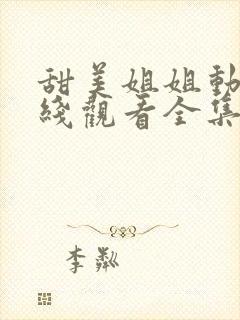 甜美姐姐動
綫觀看全集
李粼